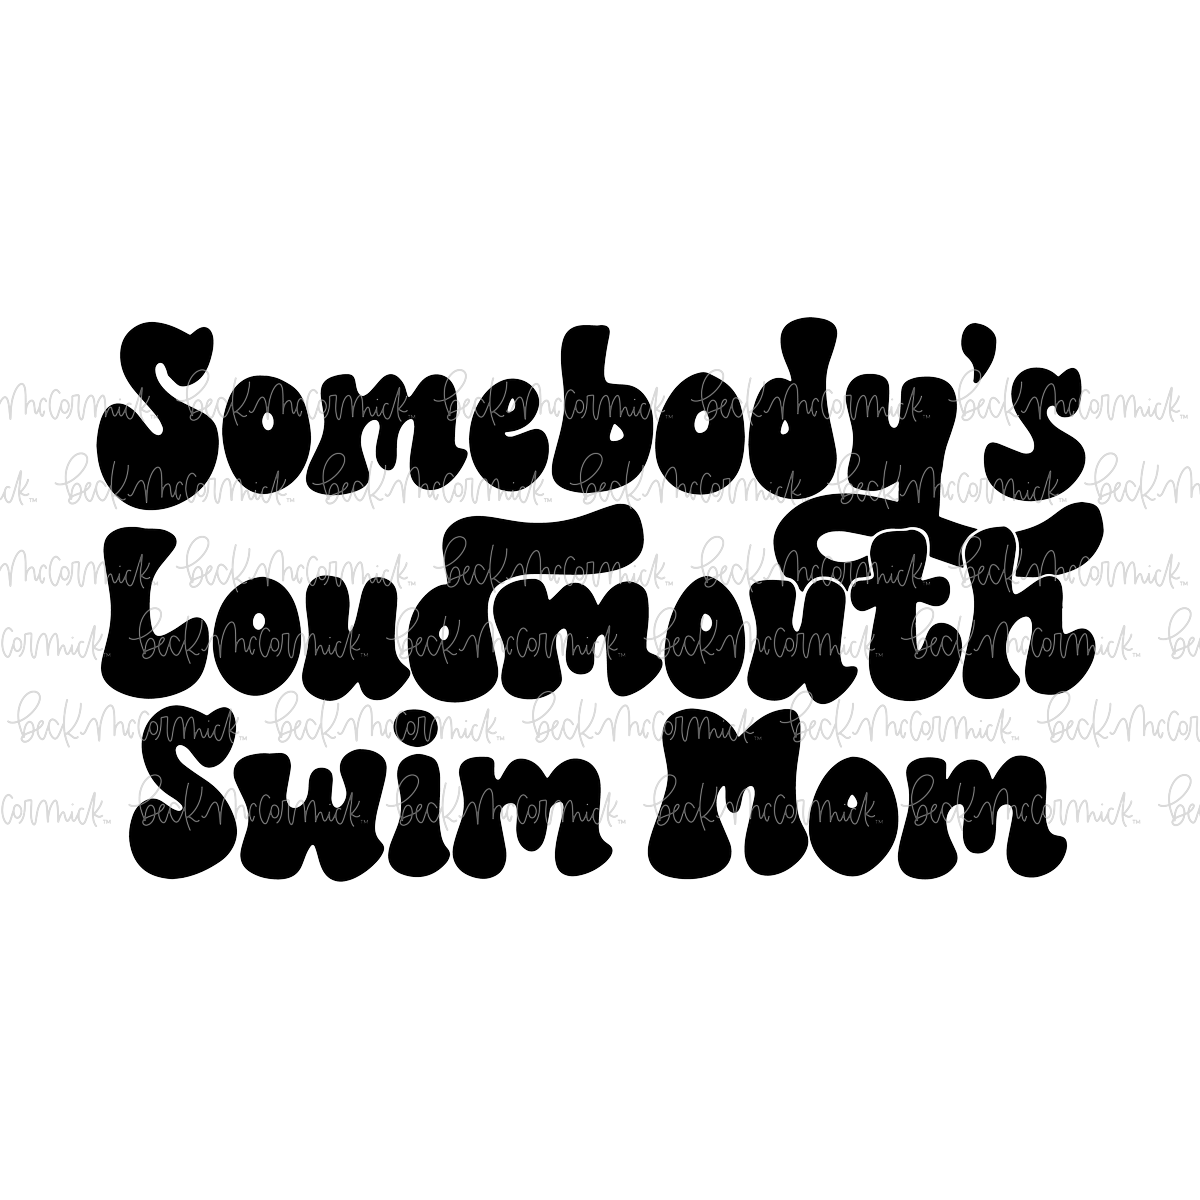 Somebody's
Loudmouth
Swim Mom
beck mccormick™